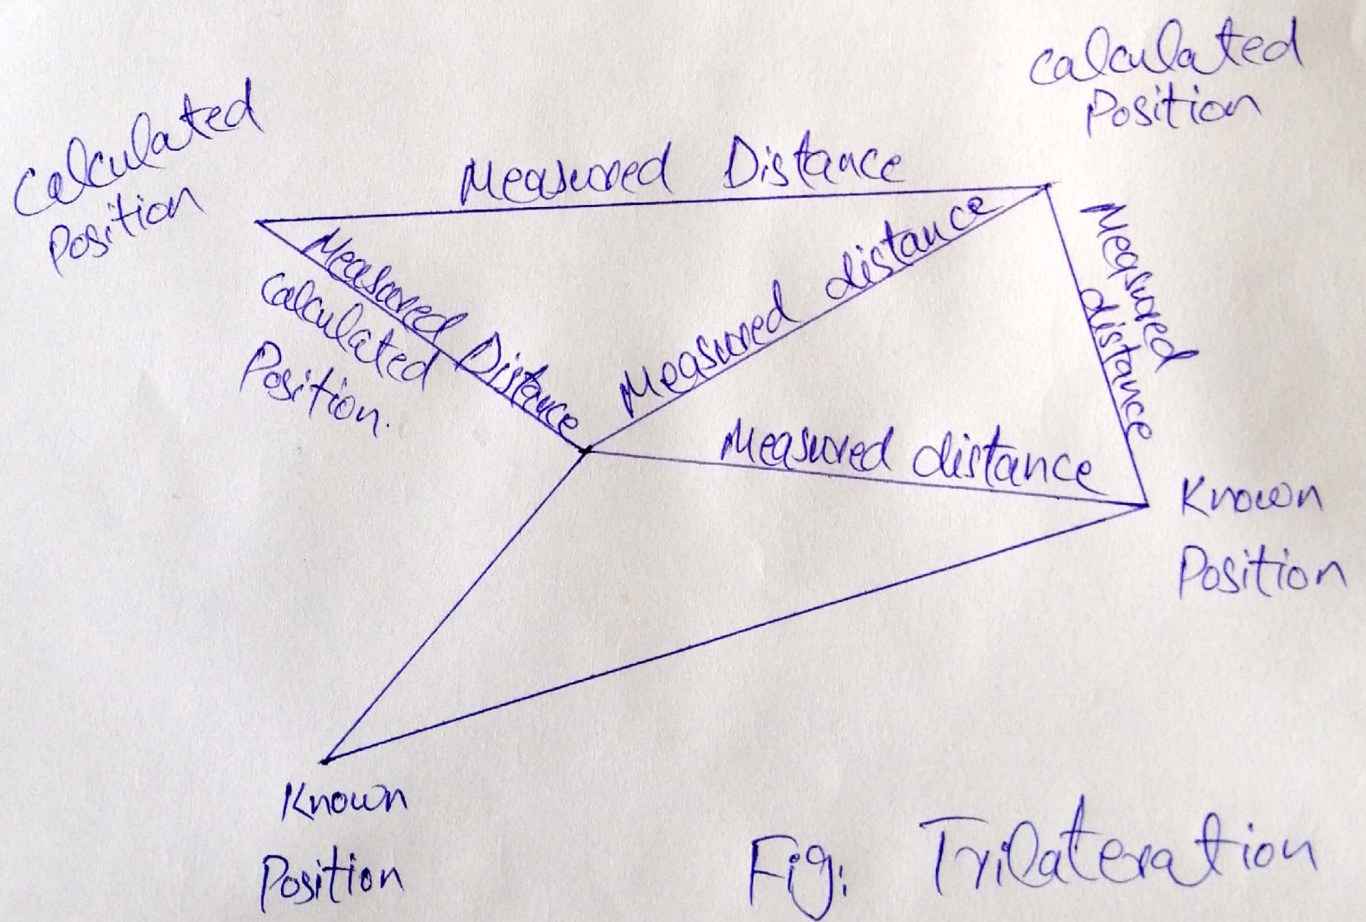 Calculated
Position
Calculated
Position
Measured Distance
Measured Distance
Calculated
Position.
Measured distance
Measured
distance
Measured distance
Known
Position
Known
Position
Fig: Trilateration